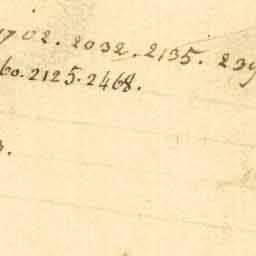 1702. 2032. 2135. 239
60. 2125. 2468.